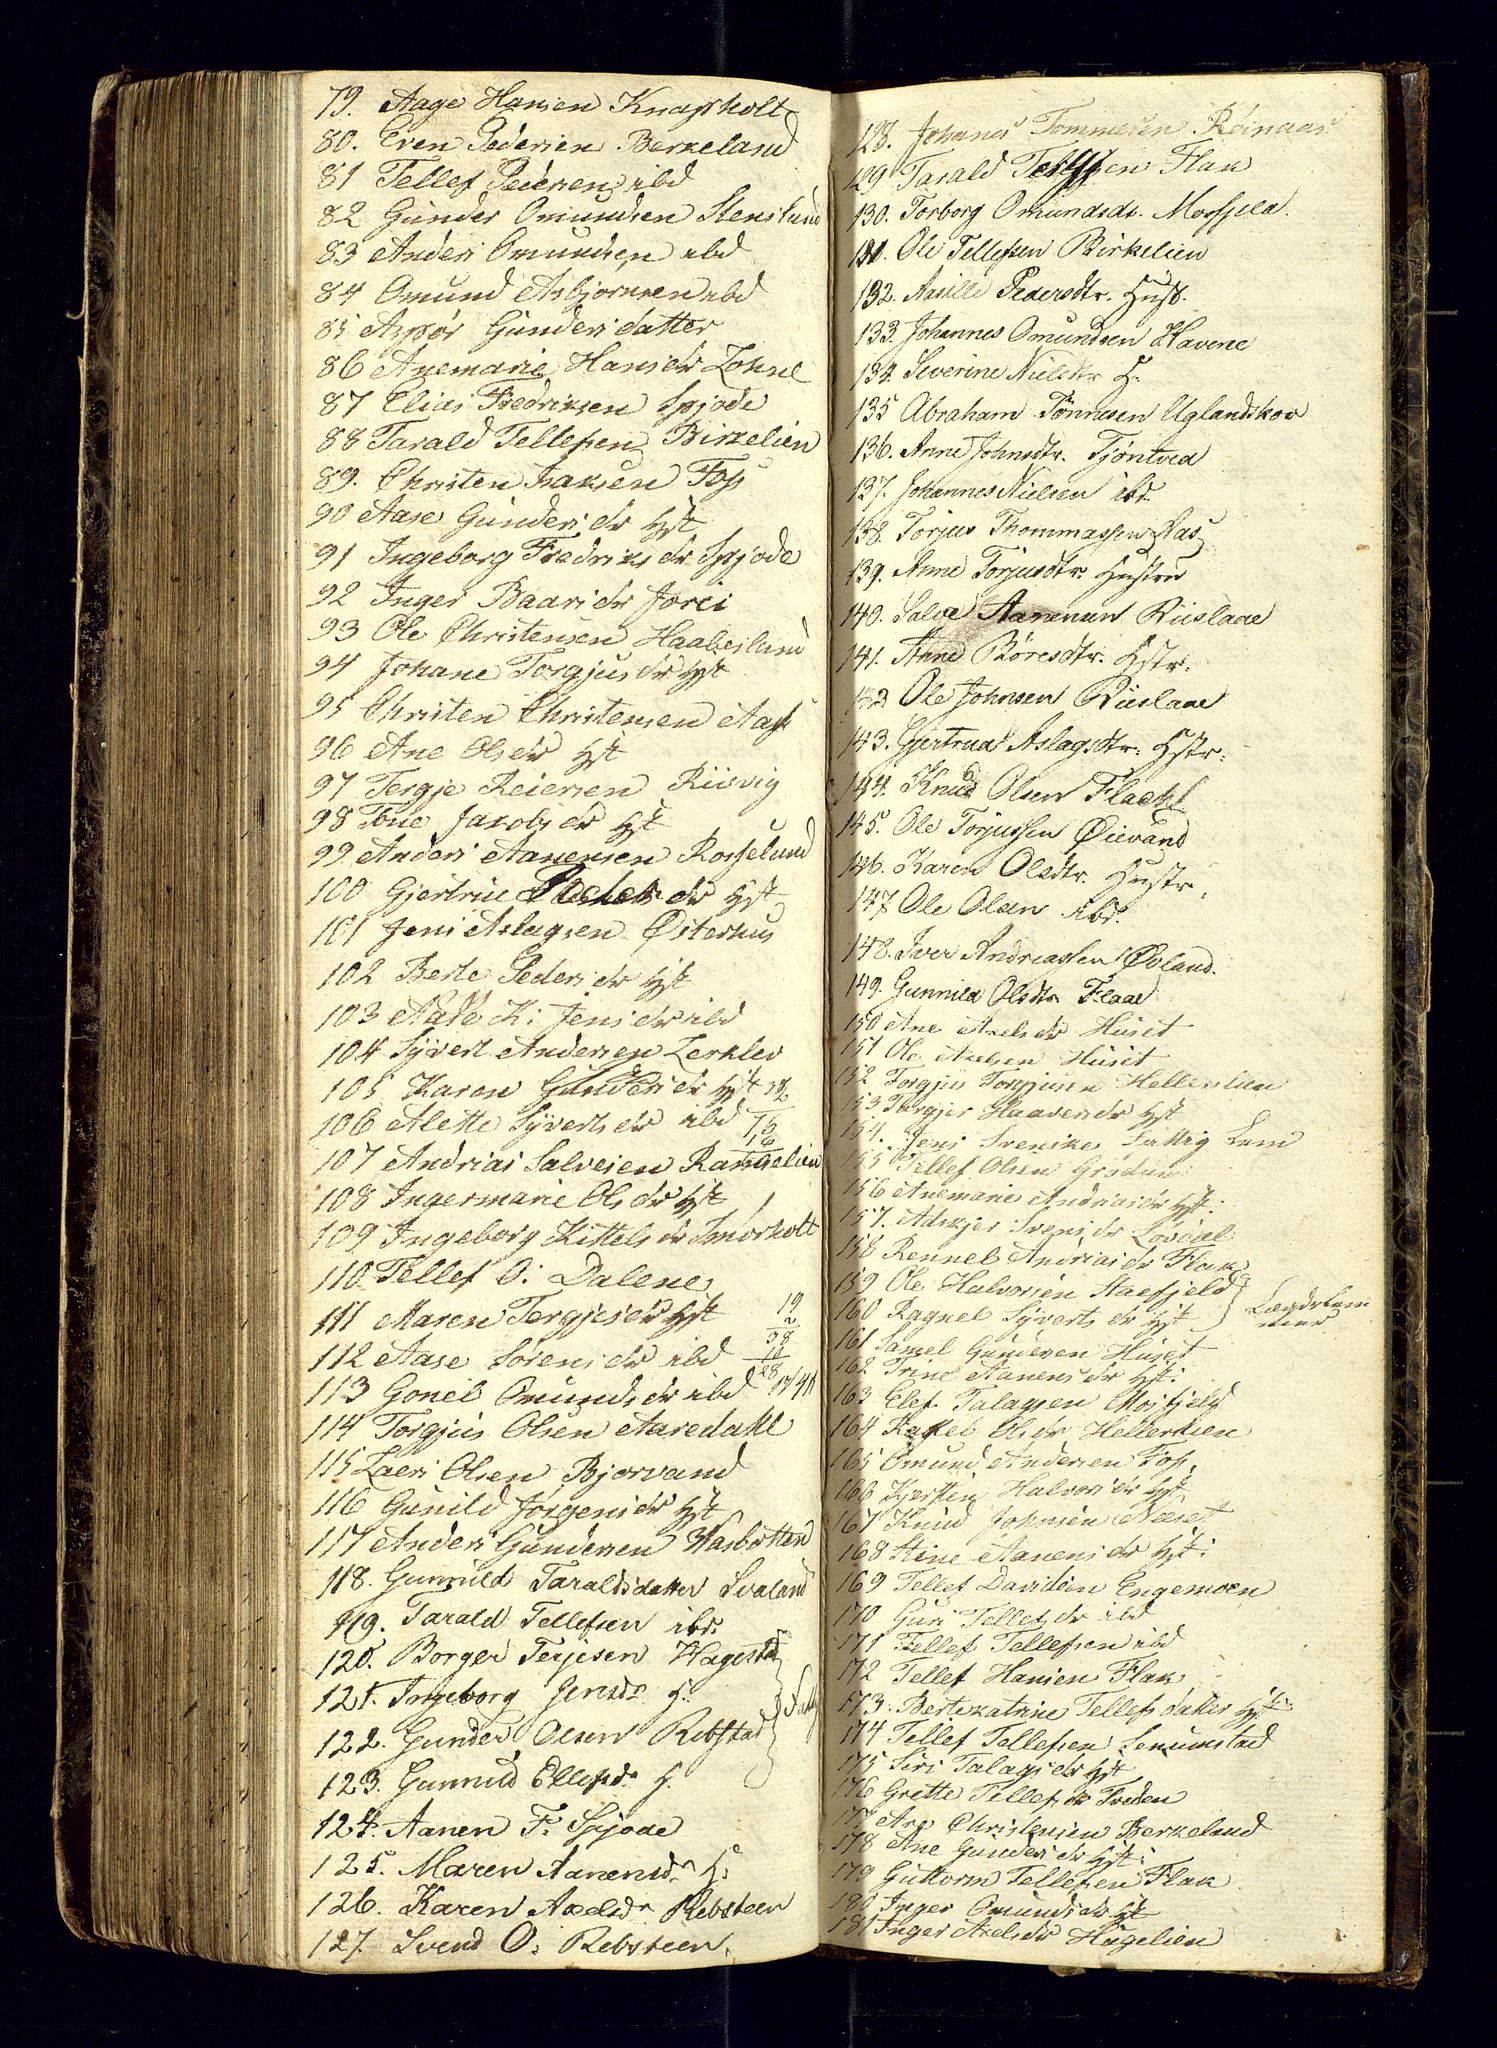 79. Aage Hansen Knapsholt
80. Even Pedersen Berkeland
81 Tellef Pedersen ibd
82 Gunder Omundsen Stenslund
83 Anders Omundsen ibd
84 Omund Asbjornsen ibd
85 Aspör Gunders datter
86 Anemarie Hans dr
87 Elias Fredriksen Spjode
88 Tarald Tellefsen Birkelien
89. Christen Isaksen Foss
90 Aase Gunders dr Hst
91 Ingeborg Fredriks dr Spjode
92 Inger Baars dr
93 Ole Christensen Haabeslund
94 Johane Torgjus dr Hst
95 Christen Christensen Aass
96 Ane Ols dr Hst
97 Tergje Reiersen Riisvig
98 Tone Jakobs dr Hst
99 Anders Aanensen Rosseland
100 Gjertrue dr Hst
101 Jens Aslagsen Østerhus
102 Berte Peders dr Hst
103 K: Jens dr ibd
104 Syvert Andersen Lerklev
105 Karen Gunders dr Hst
106 Alette Syverts dr ibd
107 Andrias Salvesen Ramselien
108 Ingermarie Ols dr Hst
109 Ingeborg Kittels dr Smörholt
110 Tellef O: Dalene
111 Maren Tergjes dr Hst 19
2
38
10
112 Aase Sörens dr ibd
113 Gonel Omunds dr ibd
114 Torgjus Olsen Aaredahl
115 Laers Olsen Bjorvand
116 Gunild Jörgens dr Hst
117 Anders Gundersen Wasbotten
118. Gunnild Taraldsdatter Svaland
119. Tarald Tellefsen ibd.
120. Borger Terjesen Hagestad
121. Ingeborg Jensdr H.
122. Gunder Olsen Rebstad
123. Gunnild Ellefsdr H.
124. Aanen F. Spjode
125. Maren Aanensdr H:
126. Karen Axelsdr Rebsteen
127. Svend O: Rebsteen.
128. Johanes Tommesen Röinaas
129 Tarald Tellefsen Flak
130. Torborg Omundsdr. Mosfjeld.
131. Ole Tellefsen Birkelien
132. Aasille Pedersdtr. Hust.
133. Johannes Omundsen Havene
134. Severine Nielsdtr H:
135 Abraham Tönnesen Uglandskov
136. Anne Johnsdtr. Tjöntved
137. Johannes Nielsen ibd.
138. Torjus Thommassen Aas
139. Anne Torjusdtr. Hustru
140. Salve Aanensen Riislaae
141. Anne Böresdtr. Hstr.
142 Ole Johnsen Riislaae
143. Gjertrud Aslagsdtr. Hstr.
144. Knud Olsen Flaehl
145. Ole Torjussen Øievand
146. Karen Olsdtr. Hustr.
147 Ole Olsen ibd.
148. Iver Andreassen Øvland.
149. Gunnild Olsdtr Flaae
150 Ane Axels dr Huset
151 Ole Axelsen Huset
152 Torgjus Torgjusen Hellerslien
153 Torgjer Haavers dr Hst
154. Jens Svenske Fattig Lem
155 Tellef Olsen Grödum
156 Anemarie Andreas dr Hst:
157. Adskjer Svens dr Lövdal
158 Rennel Andrias dr Flak
159 Ole Halvorsen Aasfjeld
160 Ragnel Syverts dr Hst Lægdslem
mer
161 Samel Gundersen Huset
162 Trine Aanens dr Hst:
163 Elef Talagsen Mosfjeld
164 Ols dr Hellerslien
165 Omund Andersen Foss
166 Kjersten Halvors dr Hst
167 Knud Johnsen Næset
168 Stine Aanens dr Hst:
169 Tellef Davidsen Engemoen
170 Guri Tellefs dr ibd
171 Tellef Tellefsen ibd
172 Tellef Hansen Flak
173. Bertekatrine Tellefs datter Hst:
174 Tellef Tellefsen Senumstad
175 Siri Talags dr Hst
176 Grette Tellefs dr Treden
177 Are Christensen Berkeland
178 Ane Gunders dr Hst:
179 Guttorm Tellefsen Flak
180 Inger Omunds dr Hst
181 Inger Axels dr Hagelien